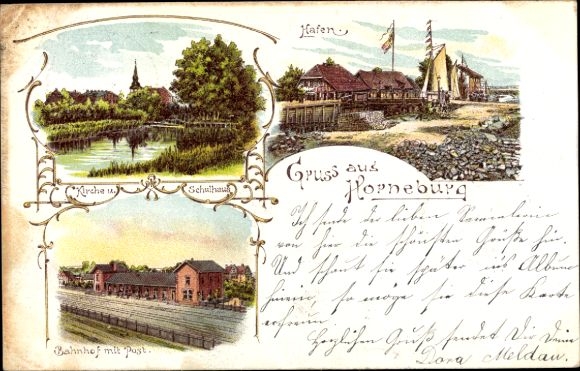 Hafen.
Kirche u. Schulhaus
Gruss aus
Horneburg
Ich sende dir lieben
von hier die schönsten Grüße hin.
Und schaust sie später ins Album
hinein, so möge sie diese Karte
erfreuen
Herzlichen Gruß sendet Dir Deine
Dora Meldau.
Bahnhof mit Post.